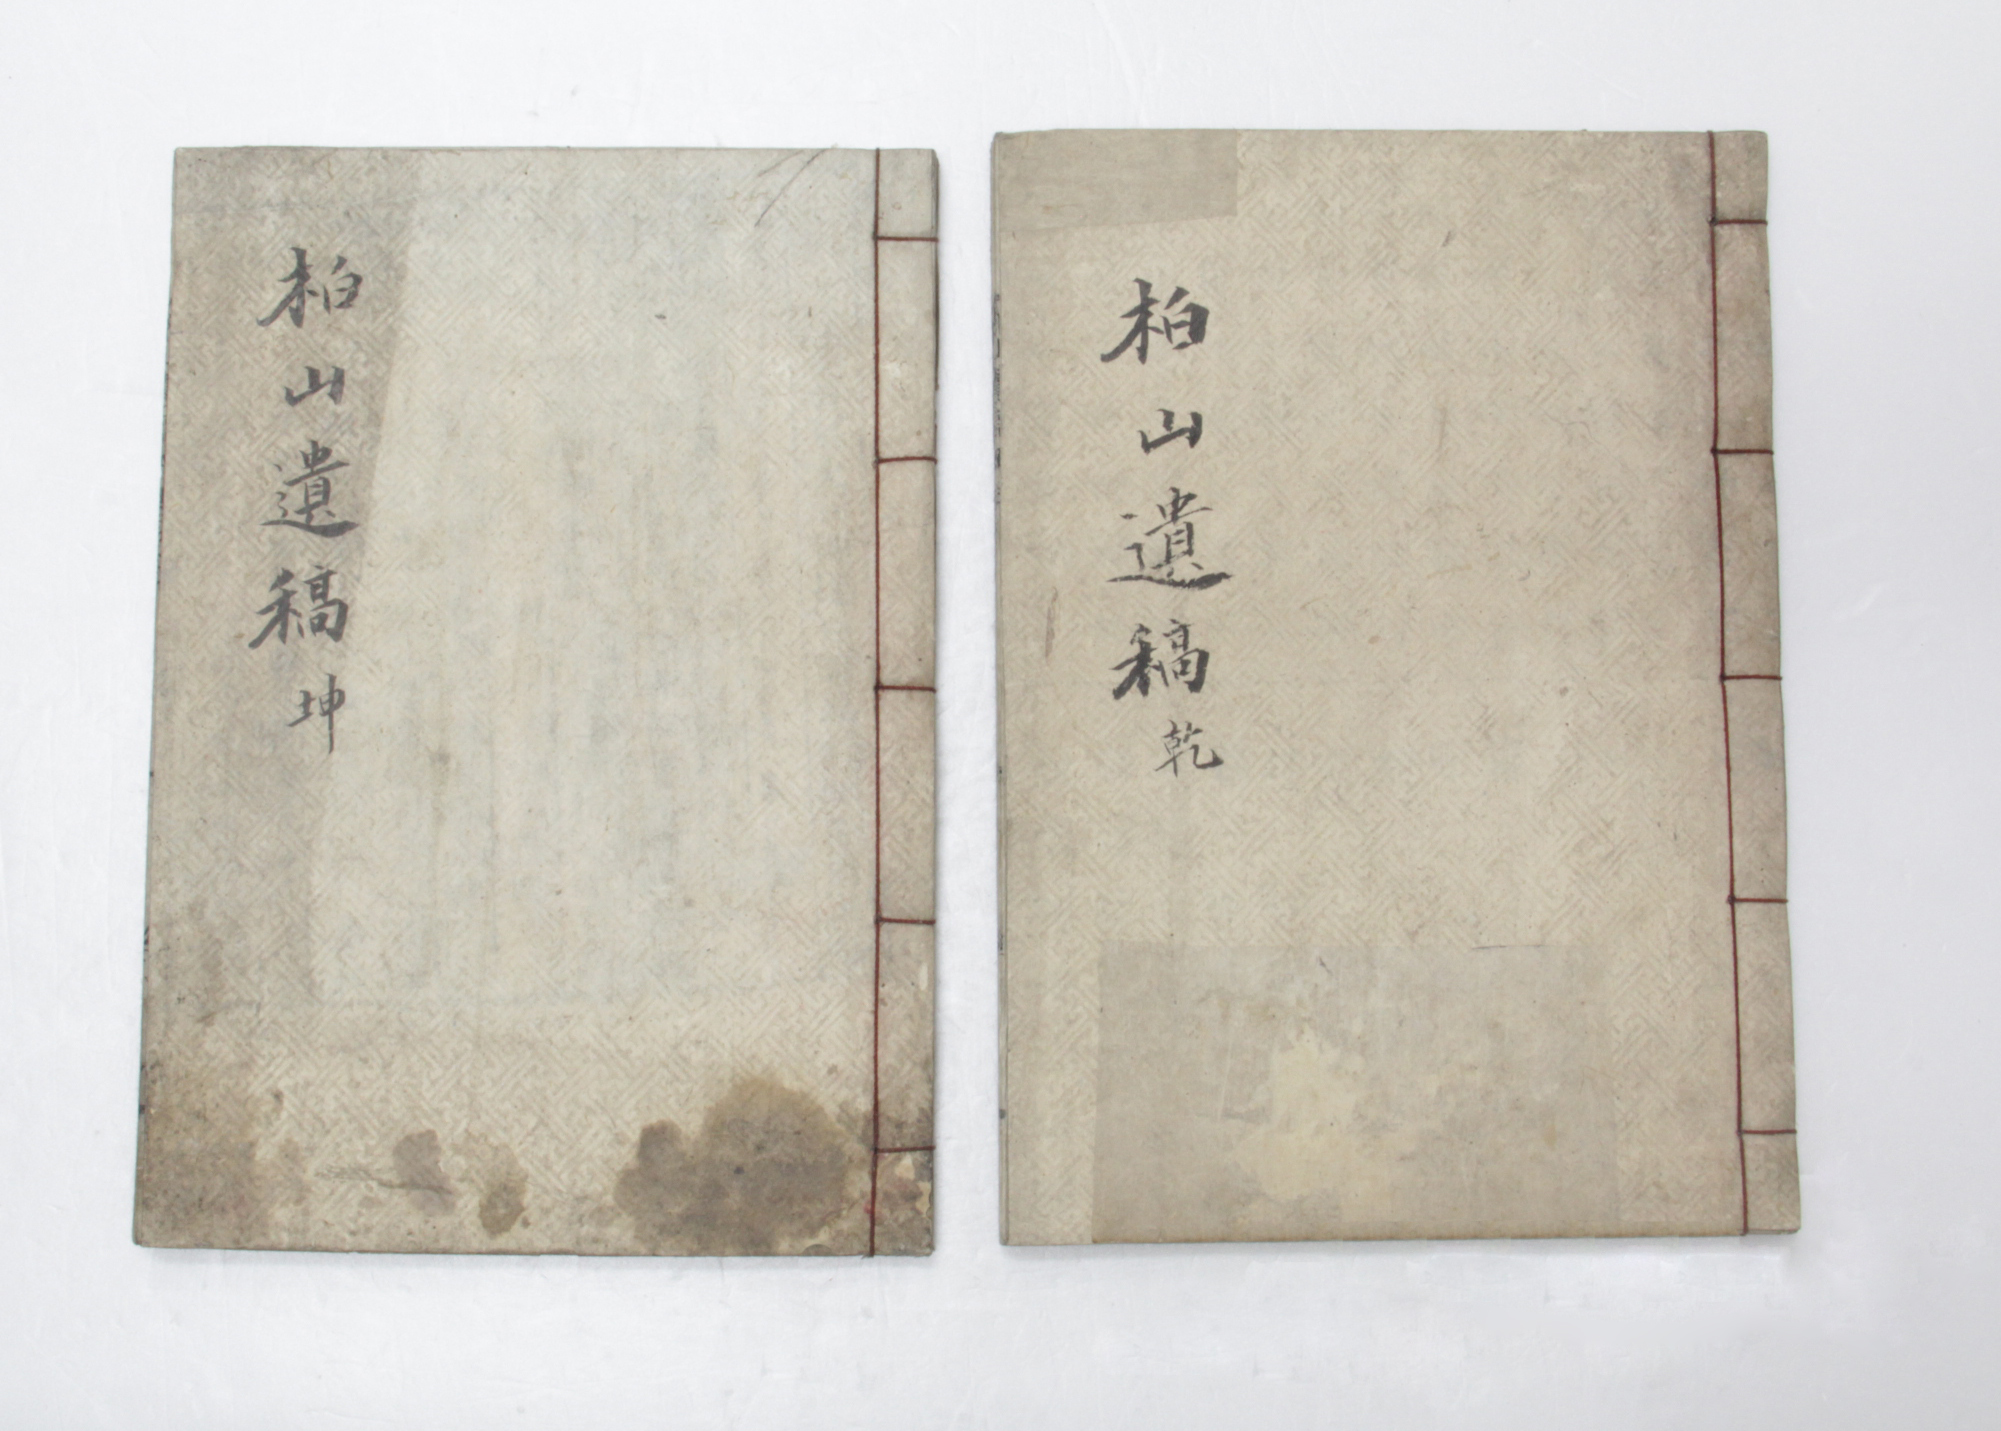 柏山遺稿 乾
柏山遺稿 坤